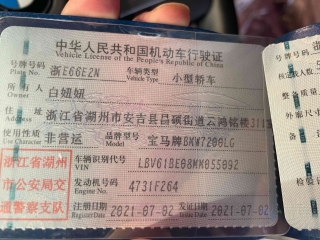 中华人民共和国机动车行驶证
Vehicle License of the People's Republic of China
号牌号码 浙E6GE2N 车辆类型 小型轿车
Plate No. Vehicle Type
所有人 白妞妞
Owner
住址 浙江省湖州市安吉县昌硕街道云鸿铭楼311
Address
使用性质 非营运 品牌型号 宝马牌BMW7200LG
Use Character Model
浙江省湖州 车辆识别代号
VIN
市公安局交 发动机号码 4731FZ64
Engine No.
通警察支队 注册日期 2021-07-02 发证日期 2021-07-02
Register Date Issue Date
浙
号牌号码
核定载
总质
外廓尺寸
备
检验